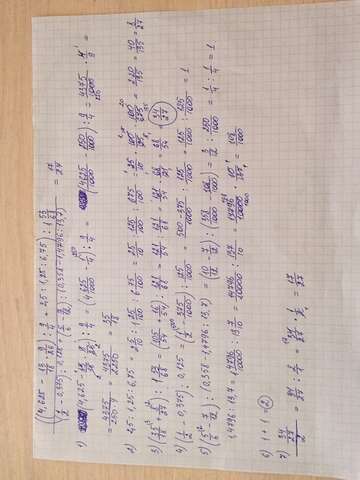 ((4,625 - 13/18 · 9/26) : 9/4 + 2,5 : 1,25 : 6,75) : 1 53/68
(1/2 - 0,375) : 0,125 + (5/6 - 7/12) : (0,358 - 1,4796 : 13,7) = 17/27
1) (4,625 - 13/18 · 9/26) : 9/4 = (4 625/1000 - 1/4) : 9/4 = (4625/1000 - 250/1000) : 9/4 = 4375/1000 · 4/9 =
= 4375/250·9 = 4375/2250 = 35/18
2) 2,5 : 1,25 : 6,75 = 25/10 : 125/100 : 675/100 = 25/10 · 100/125 · 100/675 = 220/135 = 40/135 = 8/27
3) (35/18 + 8/27) : 1 53/68 = (105/54 + 16/54) : 121/68 = 121/54 : 121/68 = 121/54 · 68/121 = 68/54 = 34/27
4) (1/2 - 0,375) : 0,125 = (1/2 - 375/1000) : 125/1000 = 500-375/1000 : 125/1000 = 125/1000 : 125/1000 = 1
5) (5/6 - 7/12) : (0,358 - 1,4796 : 13,7) = (10/12 - 7/12) : (358/1000 - 108/1000) = 3/12 : 250/1000 = 1/4 : 1/4 = 1
1,4796 : 13,7 = 1 4796/10000 : 13 7/10 = 14796/10000 : 137/10 = 14796/10000 · 10/137 = 108/1000
6) 1 + 1 = 2
7) 34/27 / 2 = 34/27 : 2/1 = 34/27 · 1/2 = 17/27